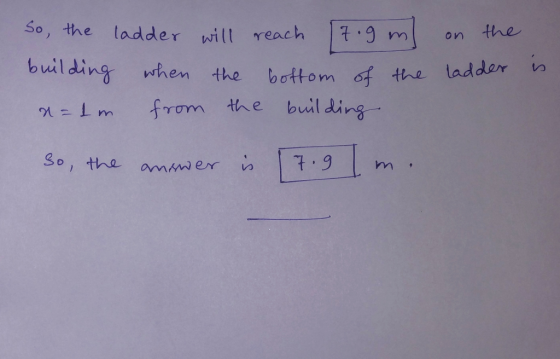 So, the ladder will reach 7.9 m on the
building when the bottom of the ladder is
x = 1 m from the building.
So, the answer is 7.9 m.